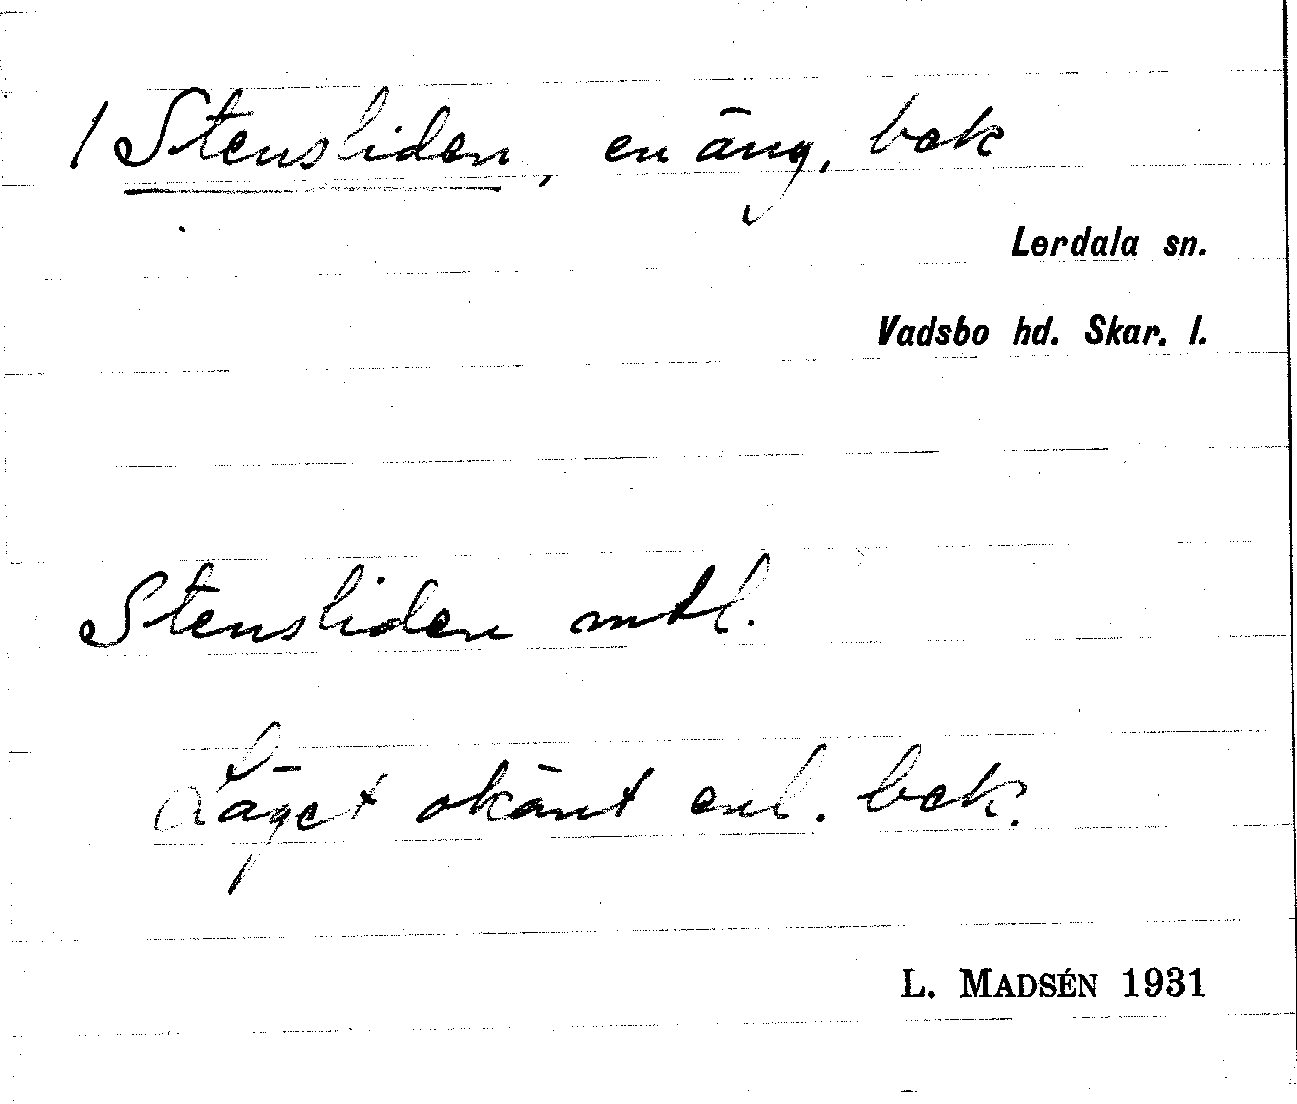 / Stensliden, en äng, bek
Lerdala sn.
Vadsbo hd. Skar. l.
Stensliden mtl.
Läget okänt enl. bek.
L. MADSÉN 1931